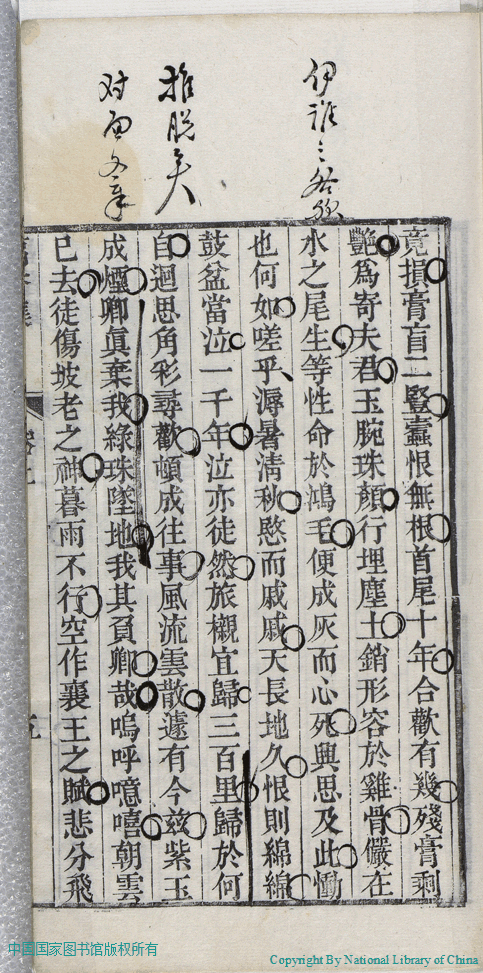 竟損膏肓二豎蠹恨無根首尾十年合歡有幾殘膏剩
艷爲寄夫君玉腕珠顏行埋塵土銷形容於雞骨儼在
水之尾生等性命於鴻毛便成灰而心死興思及此慟
也何如嗟乎溽暑淸秋愍而戚戚天長地久恨則綿綿
鼓盆當泣一千年泣亦徒然旅櫬宜歸三百里歸於何
自迴思角彩尋歡頓成往事風流雲散遽有今茲紫玉
成煙卿眞棄我綠珠墜地我其負卿哉嗚呼噫嘻朝雲
已去徒傷坡老之神暮雨不行空作襄王之賦悲分飛
推脫
对面文章
中国国家图书馆版权所有
Copyright By National Library of China